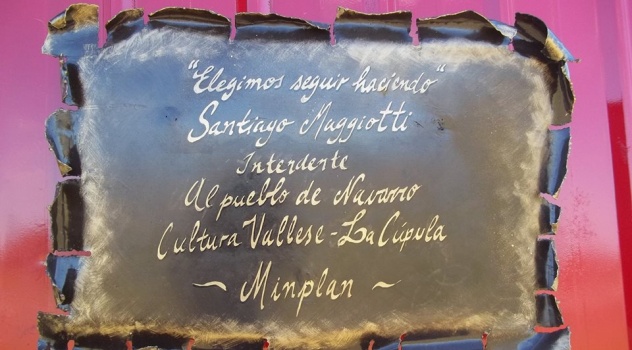 "Elegimos seguir haciendo"
Santiago Maggiotti
Intendente
Al pueblo de Navarro
Cultura Vallese - La Cúpula
~ Minplan ~